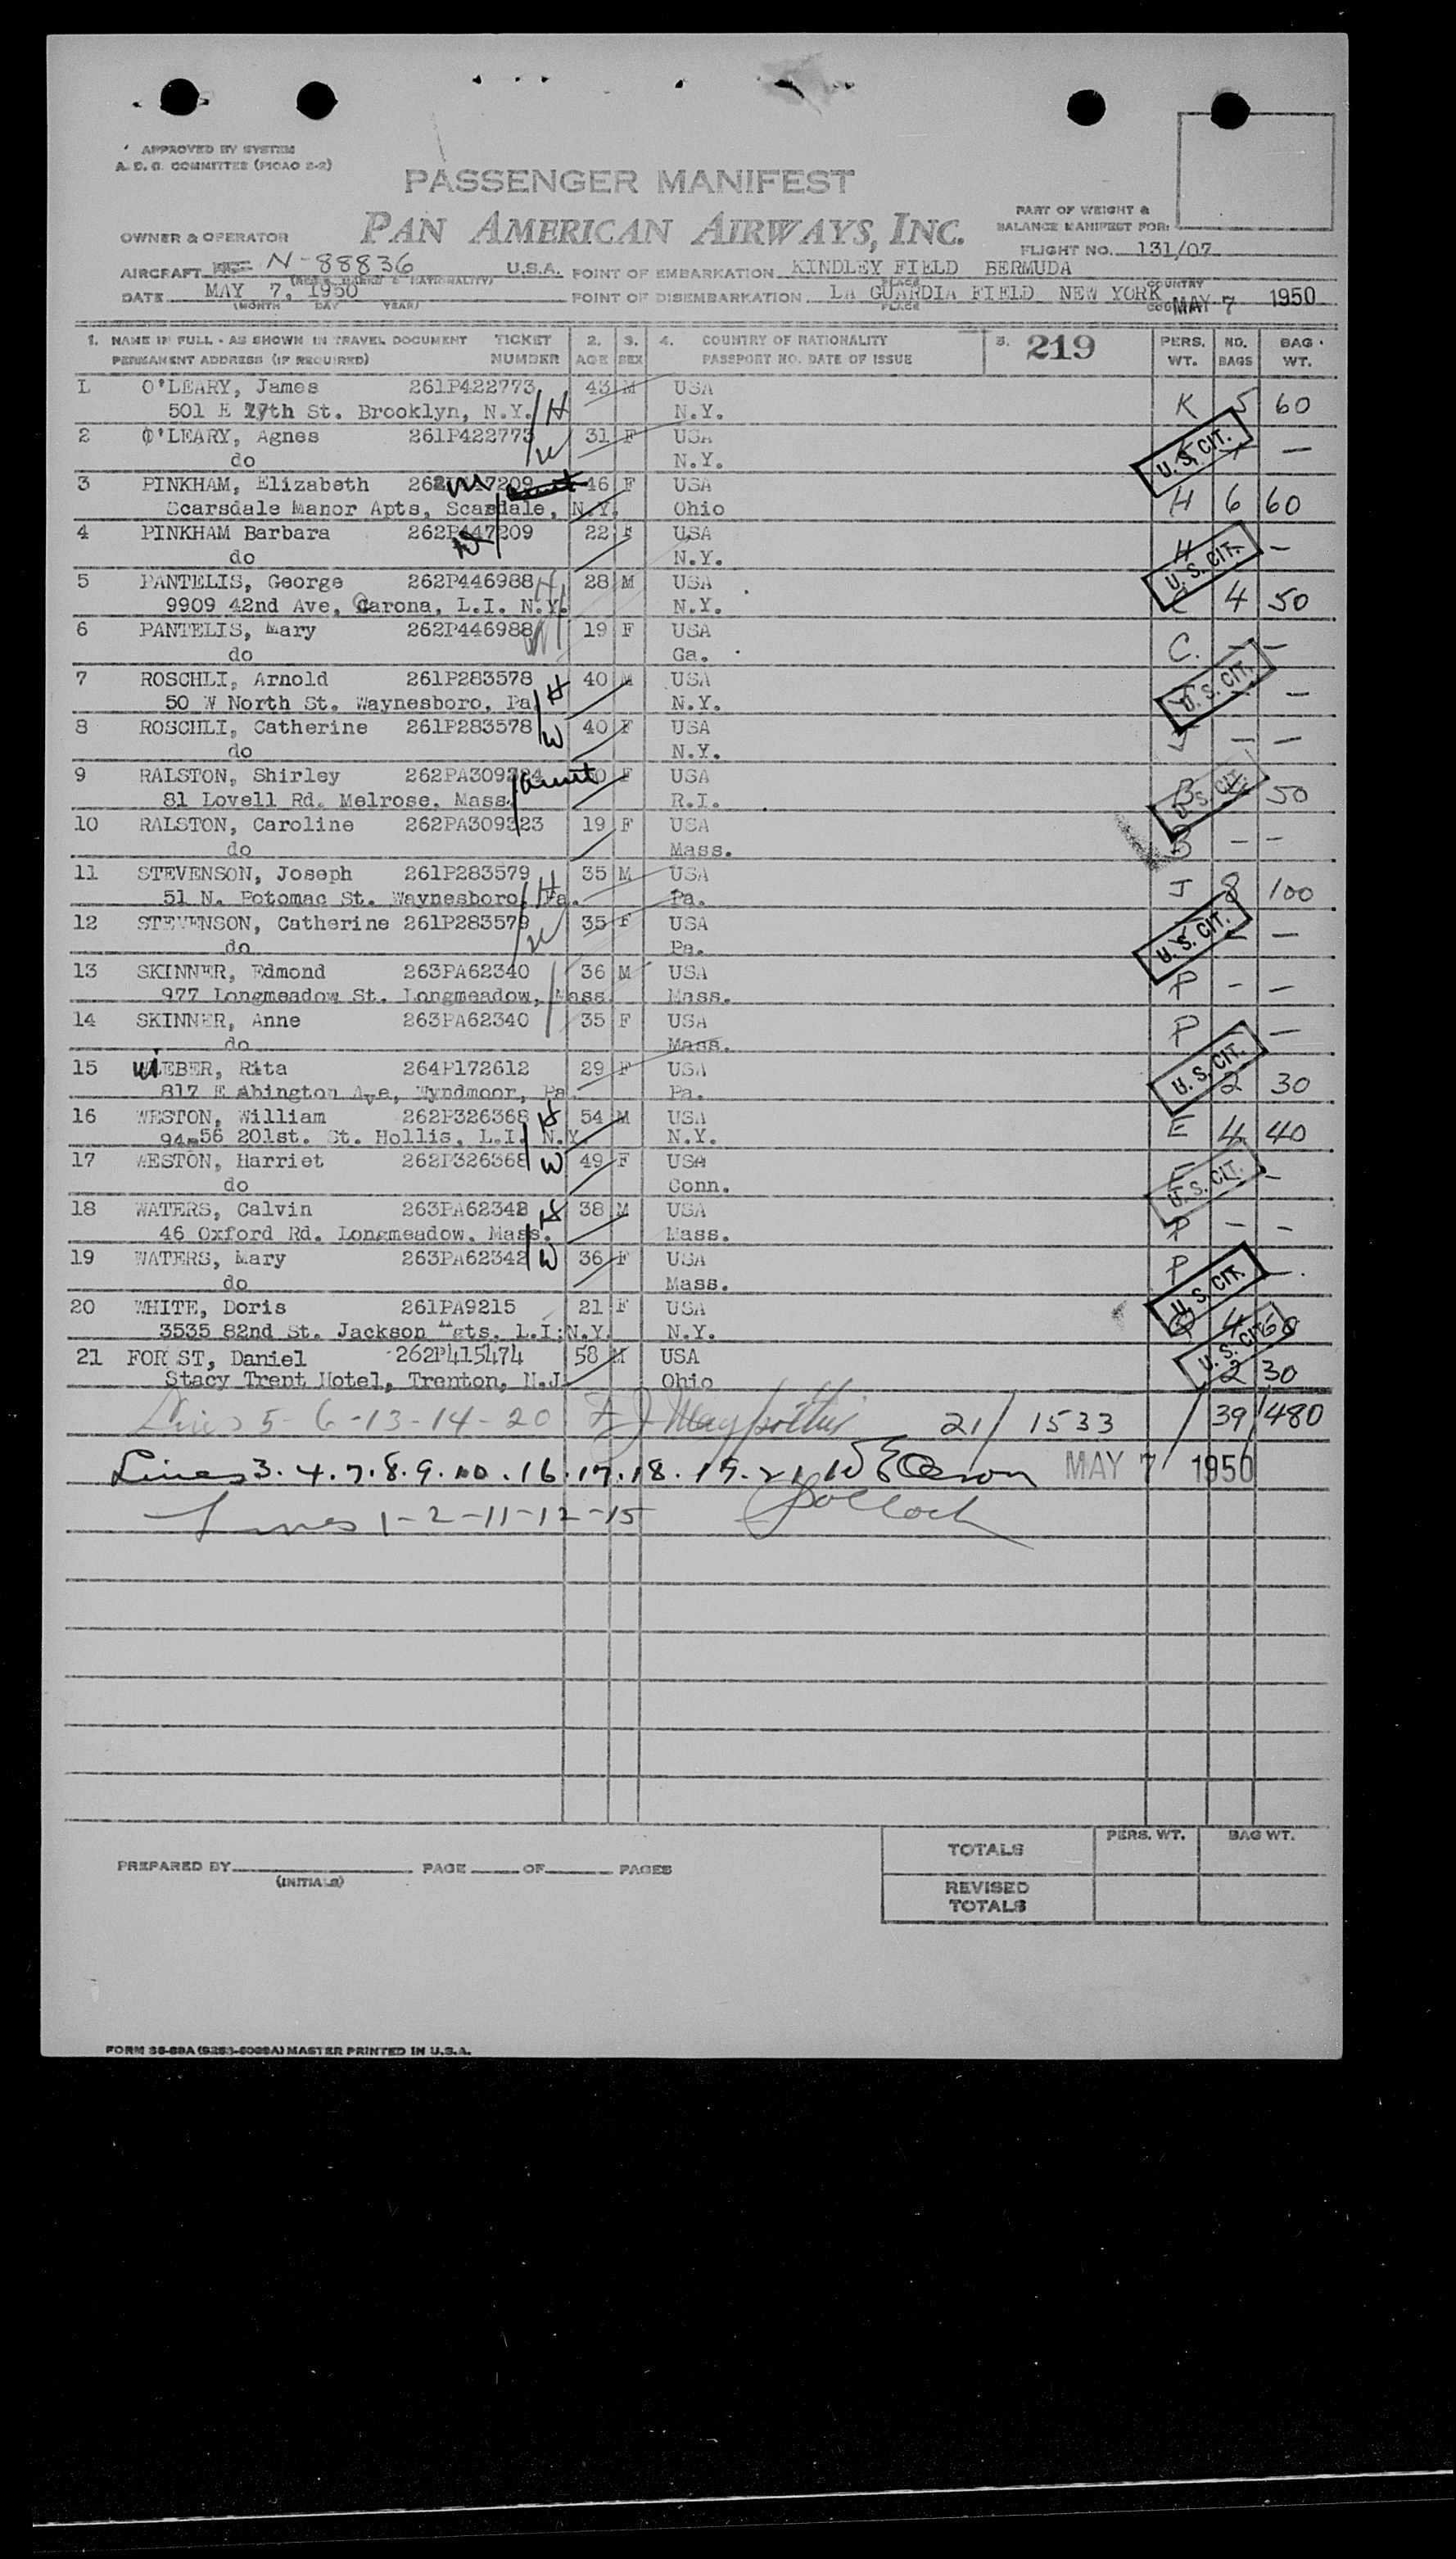 APPROVED BY SYSTEM
A. D. G. COMMITTEE (PICAO 2-2)
PASSENGER MANIFEST
PAN AMERICAN AIRWAYS, INC.
PART OF WEIGHT &
BALANCE MANIFEST FOR:
OWNER & OPERATOR
FLIGHT NO. 131/07
AIRCRAFT N-88836 U.S.A. POINT OF EMBARKATION KINDLEY FIELD BERMUDA
(REG. MARKS & NATIONALITY) PLACE COUNTRY
DATE MAY 7, 1950 POINT OF DISEMBARKATION LA GUARDIA FIELD NEW YORK MAY 7 1950
(MONTH DAY YEAR) PLACE
1. NAME IN FULL - AS SHOWN IN TRAVEL DOCUMENT TICKET 2. 3. 4. COUNTRY OF NATIONALITY 5. 219 PERS. NO. BAG
PERMANENT ADDRESS (IF REQUIRED) NUMBER AGE SEX PASSPORT NO. DATE OF ISSUE WT. BAGS WT.
1 O'LEARY, James 261P422773 43 M USA
501 E 17th St. Brooklyn, N.Y. H N.Y. K 5 60
2 O'LEARY, Agnes 261P422773 31 F USA
do W N.Y. U.S. CIT. —
3 PINKHAM, Elizabeth 262P447209 M 46 F USA
Scarsdale Manor Apts, Scarsdale, N.Y. Ohio H 6 60
4 PINKHAM Barbara 262P447209 22 F USA
do N.Y. H U.S. CIT. —
5 PANTELIS, George 262P446988 H 28 M USA
9909 42nd Ave, Carona, L.I. N.Y. N.Y. C 4 50
6 PANTELIS, Mary 262P446988 W 19 F USA
do Ga. C. — —
7 ROSCHLI, Arnold 261P283578 H 40 M USA
50 W North St. Waynesboro, Pa N.Y. U.S. CIT. —
8 ROSCHLI, Catherine 261P283578 W 40 F USA
do N.Y. J — —
9 RALSTON, Shirley aunt F USA
81 Lovell Rd. Melrose, Mass. R.I. B U.S. CIT. 50
10 RALSTON, Caroline 262PA309323 19 F USA
do Mass. B — —
11 STEVENSON, Joseph 261P283579 35 M USA
51 N. Potomac St. Waynesboro, Pa. H Pa. J 8 100
12 STEVENSON, Catherine 261P283579 35 F USA
do W Pa. U.S. CIT. —
13 SKINNER, Edmond 263PA62340 36 M USA
977 Longmeadow St. Longmeadow, Mass Mass. P — —
14 SKINNER, Anne 263PA62340 35 F USA
do Mass. P — —
15 WIEBER, Rita 264P172612 29 F USA
817 E Abington Ave, Wyndmoor, Pa. Pa. U.S. CIT. 2 30
16 WESTON, William 262P326368 H 54 M USA
94-56 201st. St. Hollis, L.I. N.Y. N.Y. E 4 40
17 WESTON, Harriet 262P326368 W 49 F USA
do Conn. E U.S. CIT. —
18 WATERS, Calvin 263PA62342 H 38 M USA
46 Oxford Rd. Longmeadow, Mass. Mass. P — —
19 WATERS, Mary 263PA62342 W 36 F USA
do Mass. P U.S. CIT. —
20 WHITE, Doris 261PA9215 21 F USA
3535 82nd St. Jackson Hgts. L.I. N.Y. N.Y. 4 60
21 FOR ST, Daniel 262P415474 58 M USA U.S. CIT.
Stacy Trent Hotel, Trenton, N.J. Ohio 2 30
Lines 5-6-13-14-20 21/ 1533 39/480
Lines 3.4.7.8.9.10.16.17.18.19.21 MAY 7 1950
Lines 1-2-11-12-15 Pollock
TOTALS PERS. WT. BAG WT.
PREPARED BY PAGE OF PAGES
(INITIALS)
REVISED
TOTALS
MASTER PRINTED IN U.S.A.